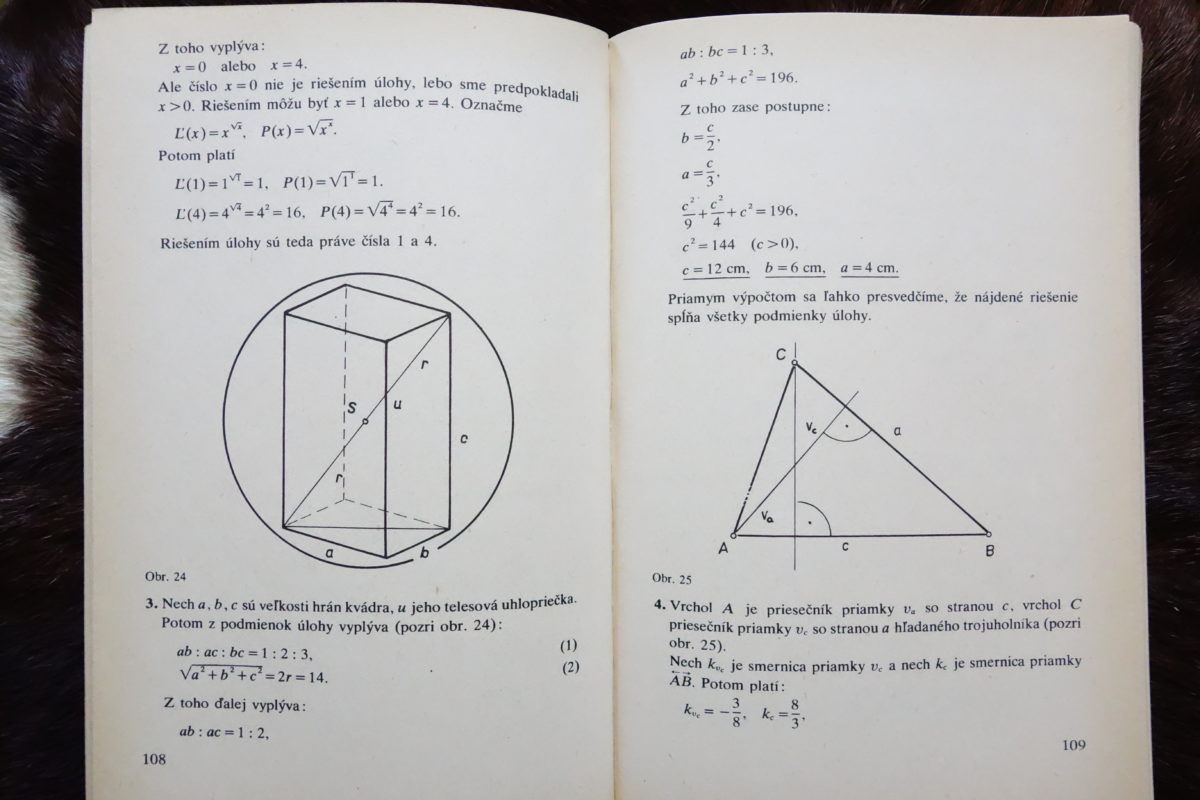 Z toho vyplýva:
x = 0 alebo x = 4.
Ale číslo x = 0 nie je riešením úlohy, lebo sme predpokladali
x > 0. Riešením môžu byť x = 1 alebo x = 4. Označme
Ľ(x) = x^√x, P(x) = √x^x.
Potom platí
Ľ(1) = 1^√1 = 1, P(1) = √1^1 = 1.
Ľ(4) = 4^√4 = 4² = 16, P(4) = √4^4 = 4² = 16.
Riešením úlohy sú teda práve čísla 1 a 4.
r
S
u
c
r
a
b
Obr. 24
3. Nech a, b, c sú veľkosti hrán kvádra, u jeho telesová uhlopriečka.
Potom z podmienok úlohy vyplýva (pozri obr. 24):
ab : ac : bc = 1 : 2 : 3, (1)
√a² + b² + c² = 2r = 14. (2)
Z toho ďalej vyplýva:
ab : ac = 1 : 2,
108
ab : bc = 1 : 3,
a² + b² + c² = 196.
Z toho zase postupne:
b = c/2,
a = c/3,
c²/9 + c²/4 + c² = 196,
c² = 144 (c > 0),
c = 12 cm, b = 6 cm, a = 4 cm.
Priamym výpočtom sa ľahko presvedčíme, že nájdené riešenie
spĺňa všetky podmienky úlohy.
C
v_c
a
v_a
A
c
B
Obr. 25
4. Vrchol A je priesečník priamky v_a so stranou c, vrchol C
priesečník priamky v_c so stranou a hľadaného trojuholníka (pozri
obr. 25).
Nech k_v_c je smernica priamky v_c a nech k_c je smernica priamky
AB. Potom platí:
k_v_c = −3/8, k_c = 8/3,
109